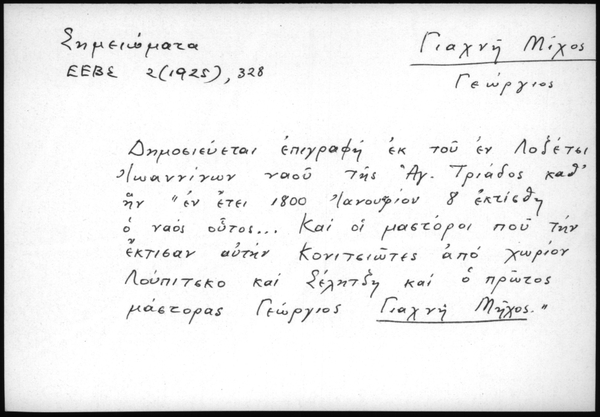 Σημειώματα
ΕΕΒΣ 2(1925), 328
Γιαχνῆ Μίχος
Γεώργιος
Δημοσιεύεται ἐπιγραφή ἐκ τοῦ ἐν Λοξέτσι
Ἰωαννίνων ναοῦ τῆς Ἁγ. Τριάδος καθ'
ἥν "ἐν ἔτει 1800 Ἰανουαρίου 8 ἐκτίσθη
ὁ ναός οὗτος... Καί οἱ μαστόροι πού τήν
ἔκτισαν αὐτήν Κονιτσιῶτες ἀπό χωρίον
Λούπιτσκο καί Σέλητζη καί ὁ πρῶτος
μάστορας Γεώργιος Γιαχνῆ Μῆχος."